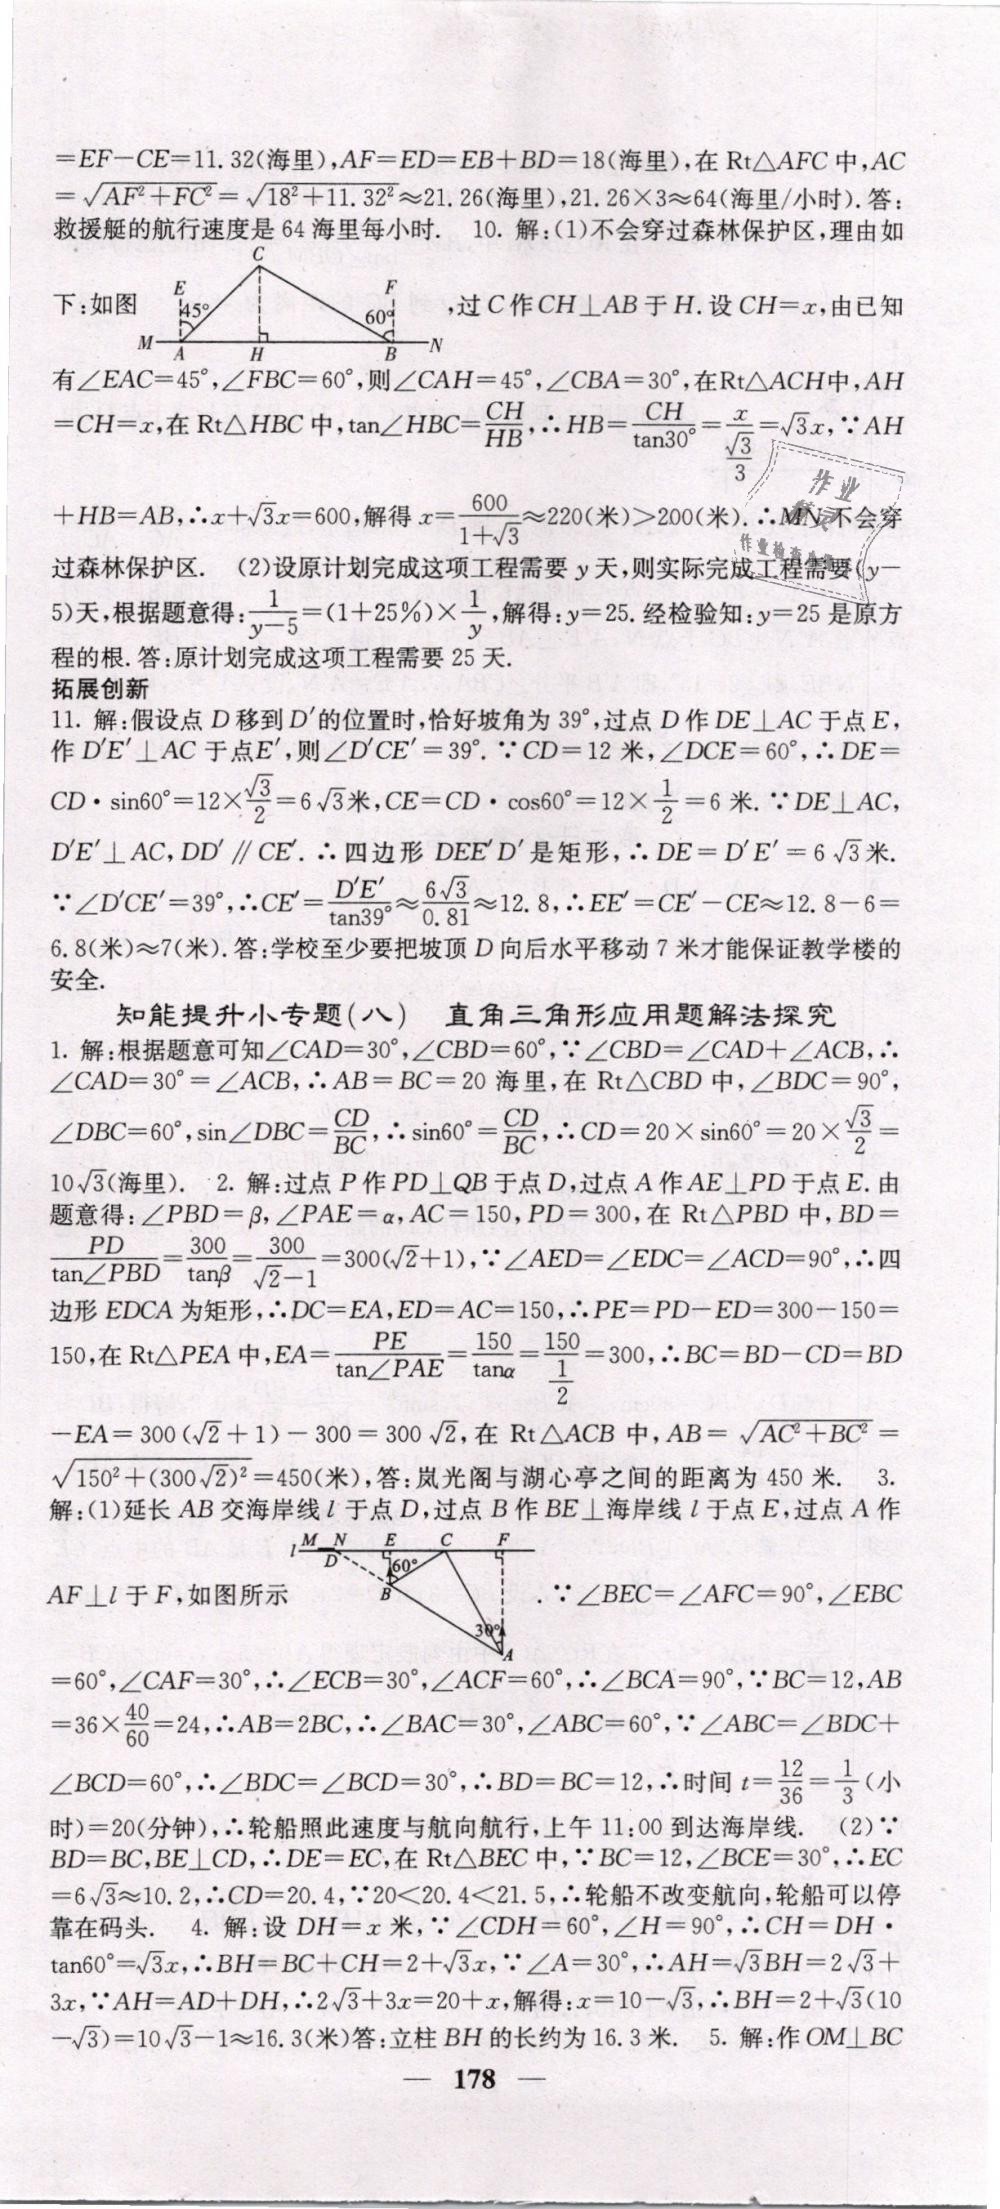 =EF−CE=11.32(海里),AF=ED=EB+BD=18(海里),在 Rt△AFC 中,AC
=√(AF²+FC²)=√(18²+11.32²)≈21.26(海里),21.26×3≈64(海里/小时).答:
救援艇的航行速度是 64 海里每小时. 10. 解:(1)不会穿过森林保护区,理由如
C
E
F
45°
60°
M
A
H
B
N
下:如图 ,过 C 作 CH⊥AB 于 H.设 CH=x,由已知
有∠EAC=45°,∠FBC=60°,则∠CAH=45°,∠CBA=30°,在Rt△ACH中,AH
=CH=x,在 Rt△HBC 中,tan∠HBC=CH/HB,∴HB=CH/tan30°=x/(√3/3)=√3x,∵AH
+HB=AB,∴x+√3x=600,解得 x=600/(1+√3)≈220(米)>200(米).∴MN 不会穿
过森林保护区. (2)设原计划完成这项工程需要 y 天,则实际完成工程需要(y−
5)天,根据题意得:1/(y−5)=(1+25%)×1/y,解得:y=25.经检验知:y=25 是原方
程的根.答:原计划完成这项工程需要 25 天.
拓展创新
11. 解:假设点 D 移到 D′的位置时,恰好坡角为 39°,过点 D 作 DE⊥AC 于点 E,
作 D′E′⊥AC 于点E′,则∠D′CE′=39°.∵CD=12 米,∠DCE=60°,∴DE=
CD·sin60°=12×√3/2=6√3米,CE=CD·cos60°=12×1/2=6 米.∵DE⊥AC,
D′E′⊥AC,DD′∥CE′.∴四边形 DEE′D′是矩形,∴DE=D′E′=6√3米.
∵∠D′CE′=39°,∴CE′=D′E′/tan39°≈6√3/0.81≈12.8,∴EE′=CE′−CE≈12.8−6=
6.8(米)≈7(米).答:学校至少要把坡顶 D 向后水平移动 7 米才能保证教学楼的
安全.
知能提升小专题(八) 直角三角形应用题解法探究
1. 解:根据题意可知∠CAD=30°,∠CBD=60°,∵∠CBD=∠CAD+∠ACB,∴
∠CAD=30°=∠ACB,∴AB=BC=20 海里,在 Rt△CBD 中,∠BDC=90°,
∠DBC=60°,sin∠DBC=CD/BC,∴sin60°=CD/BC,∴CD=20×sin60°=20×√3/2=
10√3(海里). 2. 解:过点 P 作 PD⊥QB 于点 D,过点 A 作 AE⊥PD 于点 E.由
题意得:∠PBD=β,∠PAE=α,AC=150,PD=300,在 Rt△PBD 中,BD=
PD/tan∠PBD=300/tanβ=300/(√2−1)=300(√2+1),∵∠AED=∠EDC=∠ACD=90°,∴四
边形 EDCA 为矩形,∴DC=EA,ED=AC=150,∴PE=PD−ED=300−150=
150,在 Rt△PEA 中,EA=PE/tan∠PAE=150/tanα=150/(1/2)=300,∴BC=BD−CD=BD
−EA=300(√2+1)−300=300√2,在 Rt△ACB 中,AB=√(AC²+BC²)=
√(150²+(300√2)²)=450(米),答:岚光阁与湖心亭之间的距离为 450 米. 3.
解:(1)延长 AB 交海岸线 l 于点 D,过点 B 作 BE⊥海岸线 l 于点 E,过点 A 作
l
M N
E
C
F
D
60°
B
30°
A
AF⊥l 于 F,如图所示 .∵∠BEC=∠AFC=90°,∠EBC
=60°,∠CAF=30°,∴∠ECB=30°,∠ACF=60°,∴∠BCA=90°,∵BC=12,AB
=36×40/60=24,∴AB=2BC,∴∠BAC=30°,∠ABC=60°,∵∠ABC=∠BDC+
∠BCD=60°,∴∠BDC=∠BCD=30°,∴BD=BC=12,∴时间 t=12/36=1/3(小
时)=20(分钟),∴轮船照此速度与航向航行,上午 11:00 到达海岸线. (2)∵
BD=BC,BE⊥CD,∴DE=EC,在 Rt△BEC 中,∵BC=12,∠BCE=30°,∴EC
=6√3≈10.2,∴CD=20.4,∵20<20.4<21.5,∴轮船不改变航向,轮船可以停
靠在码头. 4. 解:设 DH=x 米,∵∠CDH=60°,∠H=90°,∴CH=DH·
tan60°=√3x,∴BH=BC+CH=2+√3x,∵∠A=30°,∴AH=√3BH=2√3+
3x,∵AH=AD+DH,∴2√3+3x=20+x,解得:x=10−√3,∴BH=2+√3(10
−√3)=10√3−1≈16.3(米)答:立柱 BH 的长约为 16.3 米. 5. 解:作 OM⊥BC
— 178 —